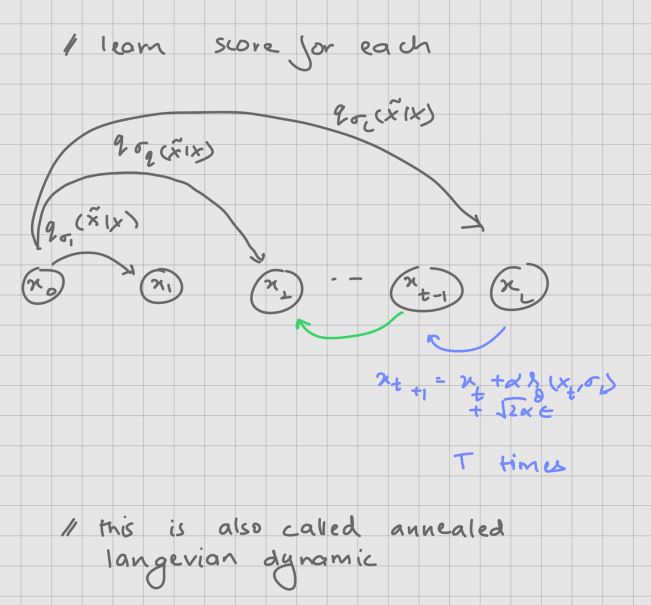 // learn score for each
q_{σ_L}(x̃|x)
q_{σ_q}(x̃|x)
q_{σ_1}(x̃|x)
x_0 x_1 x_2 -- x_{t-1} x_L
x_{t+1} = x_t + α s_θ (x_t, σ_L)
+ √2α ε
T times
// this is also called annealed
langevian dynamic